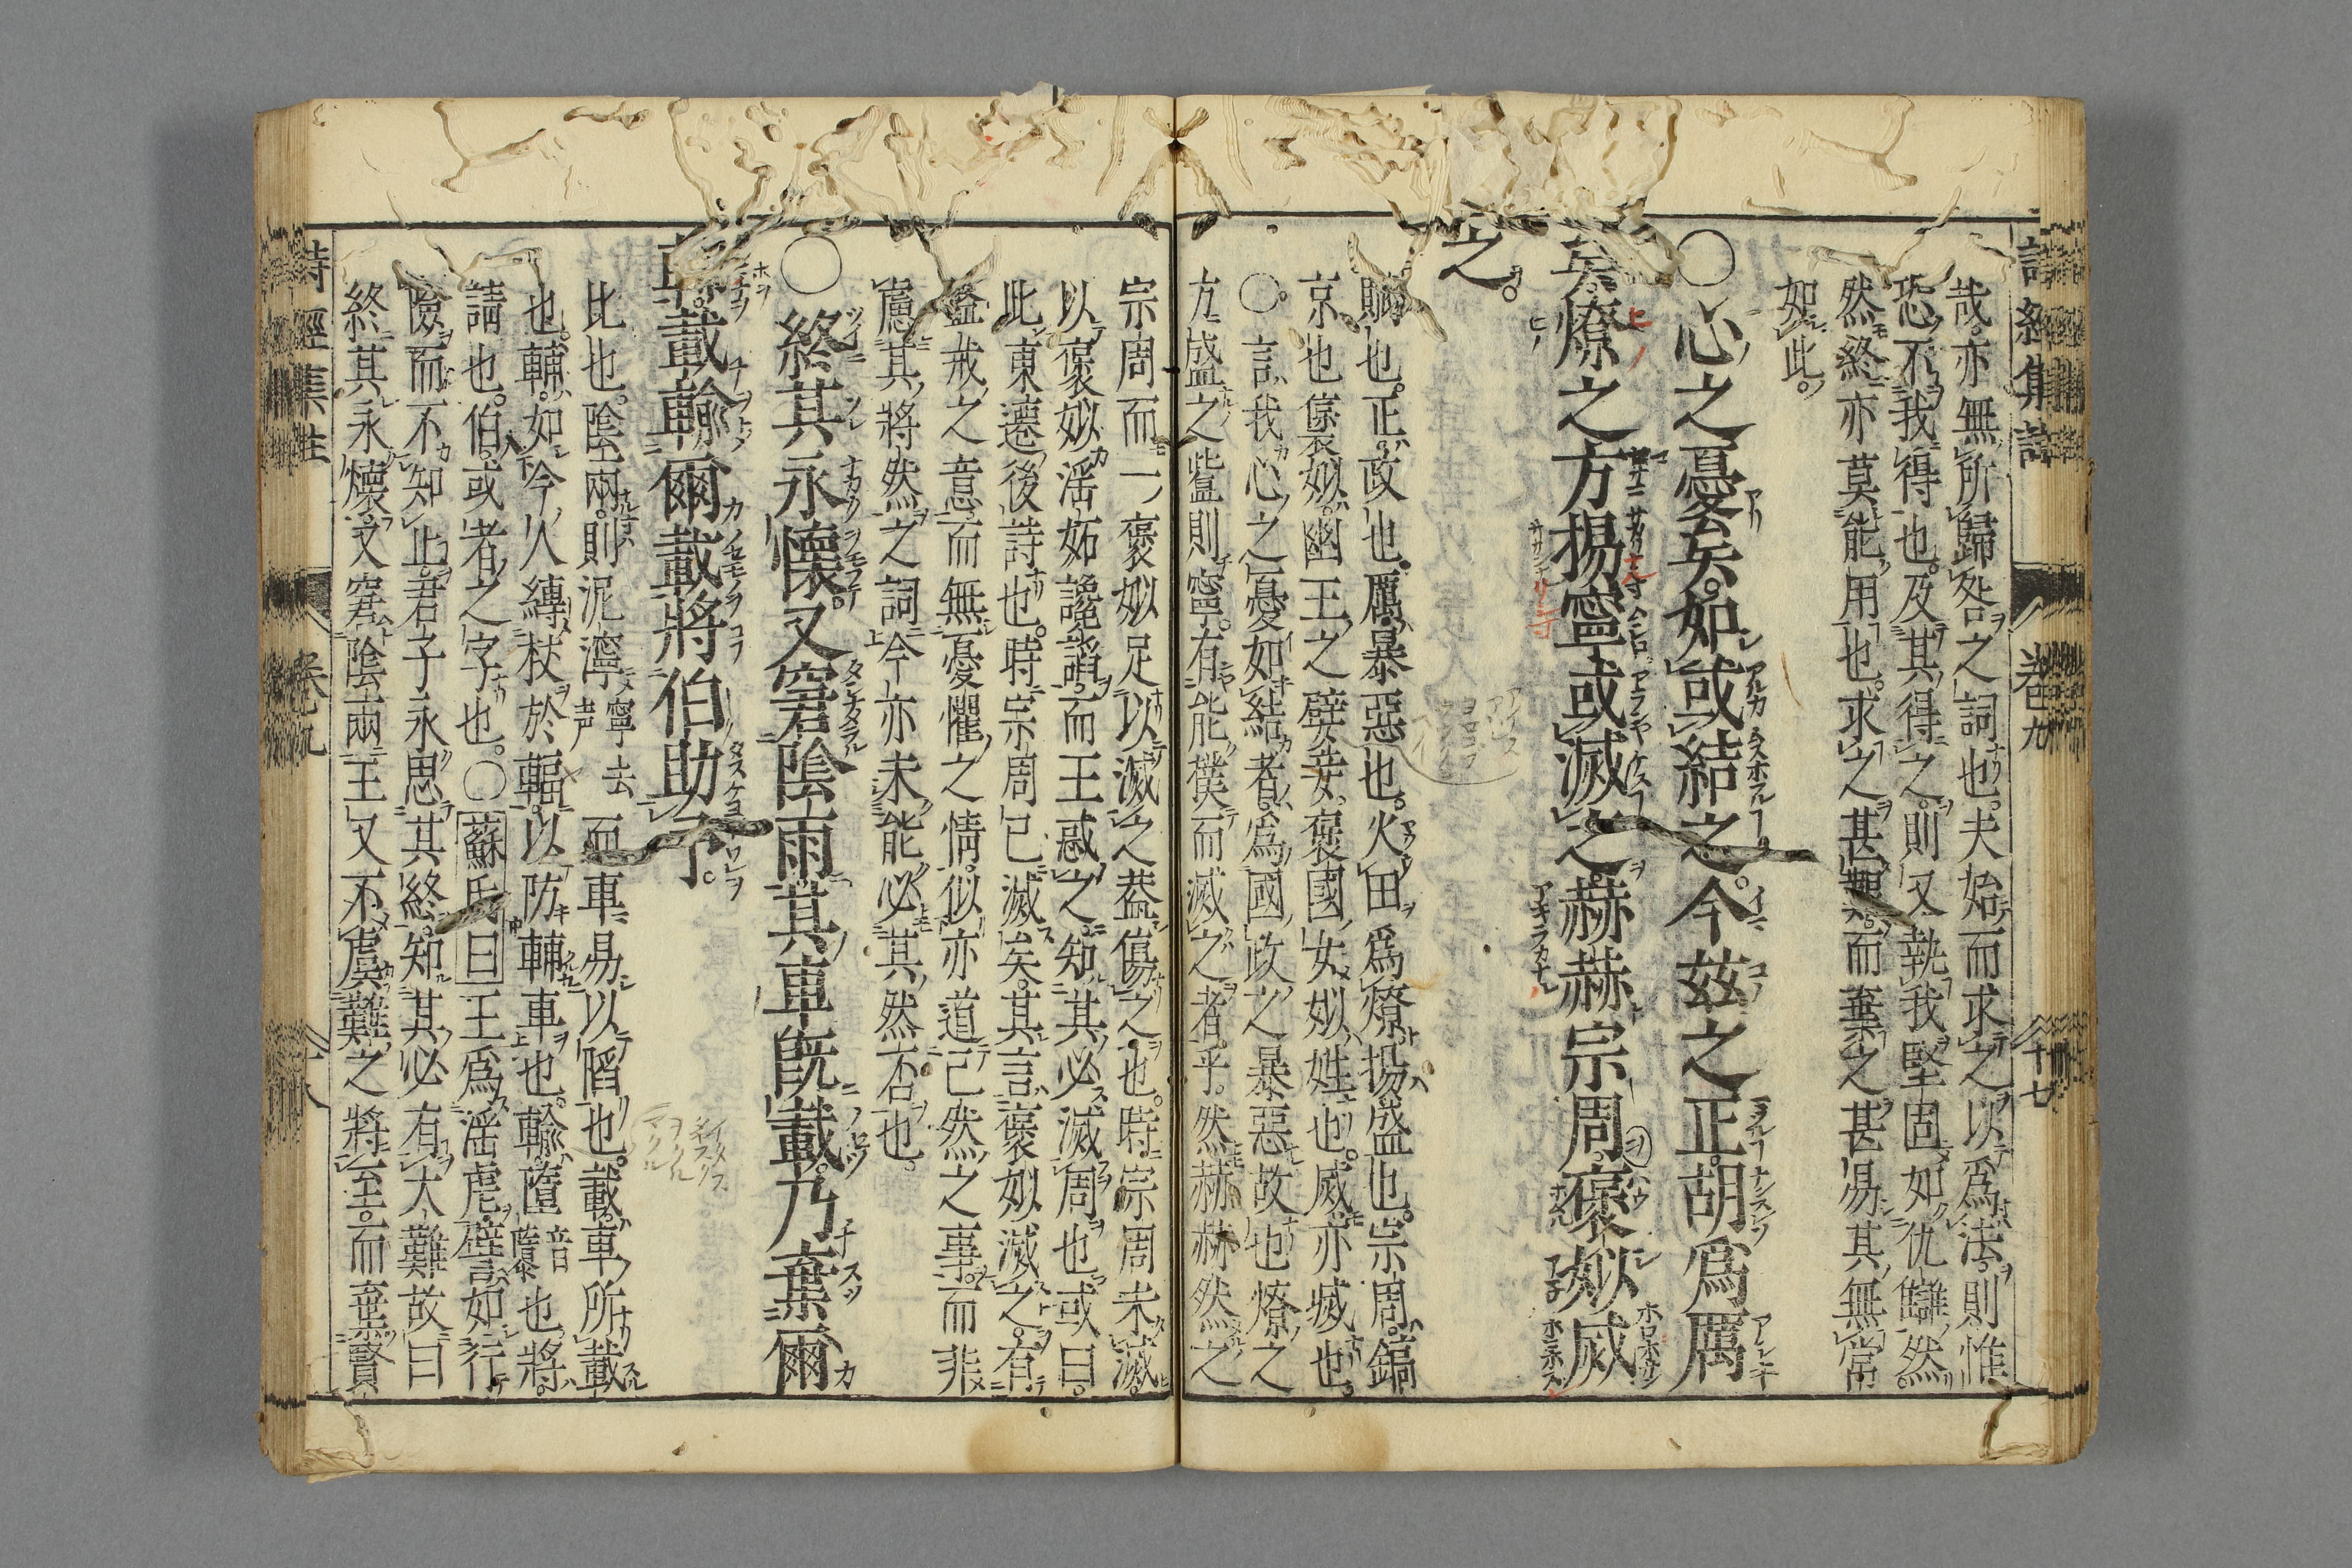 哉。亦無所歸咎之詞也。夫始而求之以爲法。則惟
恐不我得也。及其得之。則又執我堅固如仇讎然。
然終亦莫能用也。求之甚艱。而棄之甚易。其無常
如此。
〇心之憂矣。如或結之。今茲之正。胡爲厲
矣。燎之方揚。寧或滅之。赫赫宗周。褒姒烕
之。
賦也。正。政也。厲。暴惡也。火田爲燎。揚。盛也。宗周。鎬
京也。褒姒。幽王之嬖妾。褒國女。姒姓也。烕。亦滅也。
〇言我心之憂如結者。爲國政之暴惡故也。燎之
方盛之時。則寧有能撲而滅之者乎。然赫赫然之
宗周。而一褒姒足以滅之。蓋傷之也。時宗周未滅。
以褒姒淫妬讒諂。而王惑之。知其必滅周也。或曰。
此東遷後詩也。時宗周已滅矣。其言褒姒滅之。有
鑑戒之意。而無憂懼之情。似亦道已然之事。而非
慮其將然之詞。今亦未能必其然否也。
〇終其永懷。又窘陰雨。其車旣載。乃棄爾
輔。載輸爾載。將伯助予。
比也。陰雨。則泥濘濘去声而車易以陷也。載。車所載
也。輔。如今人縛杖於輻。以防輔車也。輸。墮音隳也。將。
請也。伯。或者之字也。〇蘇氏曰王爲淫虐。譬如行
險而不知止。君子永思其終。知其必有大難。故曰
終其永懷。又窘陰雨。王又不虞難之將至。而棄賢
詩經集註
卷九
十七
詩經集註
卷九
十八